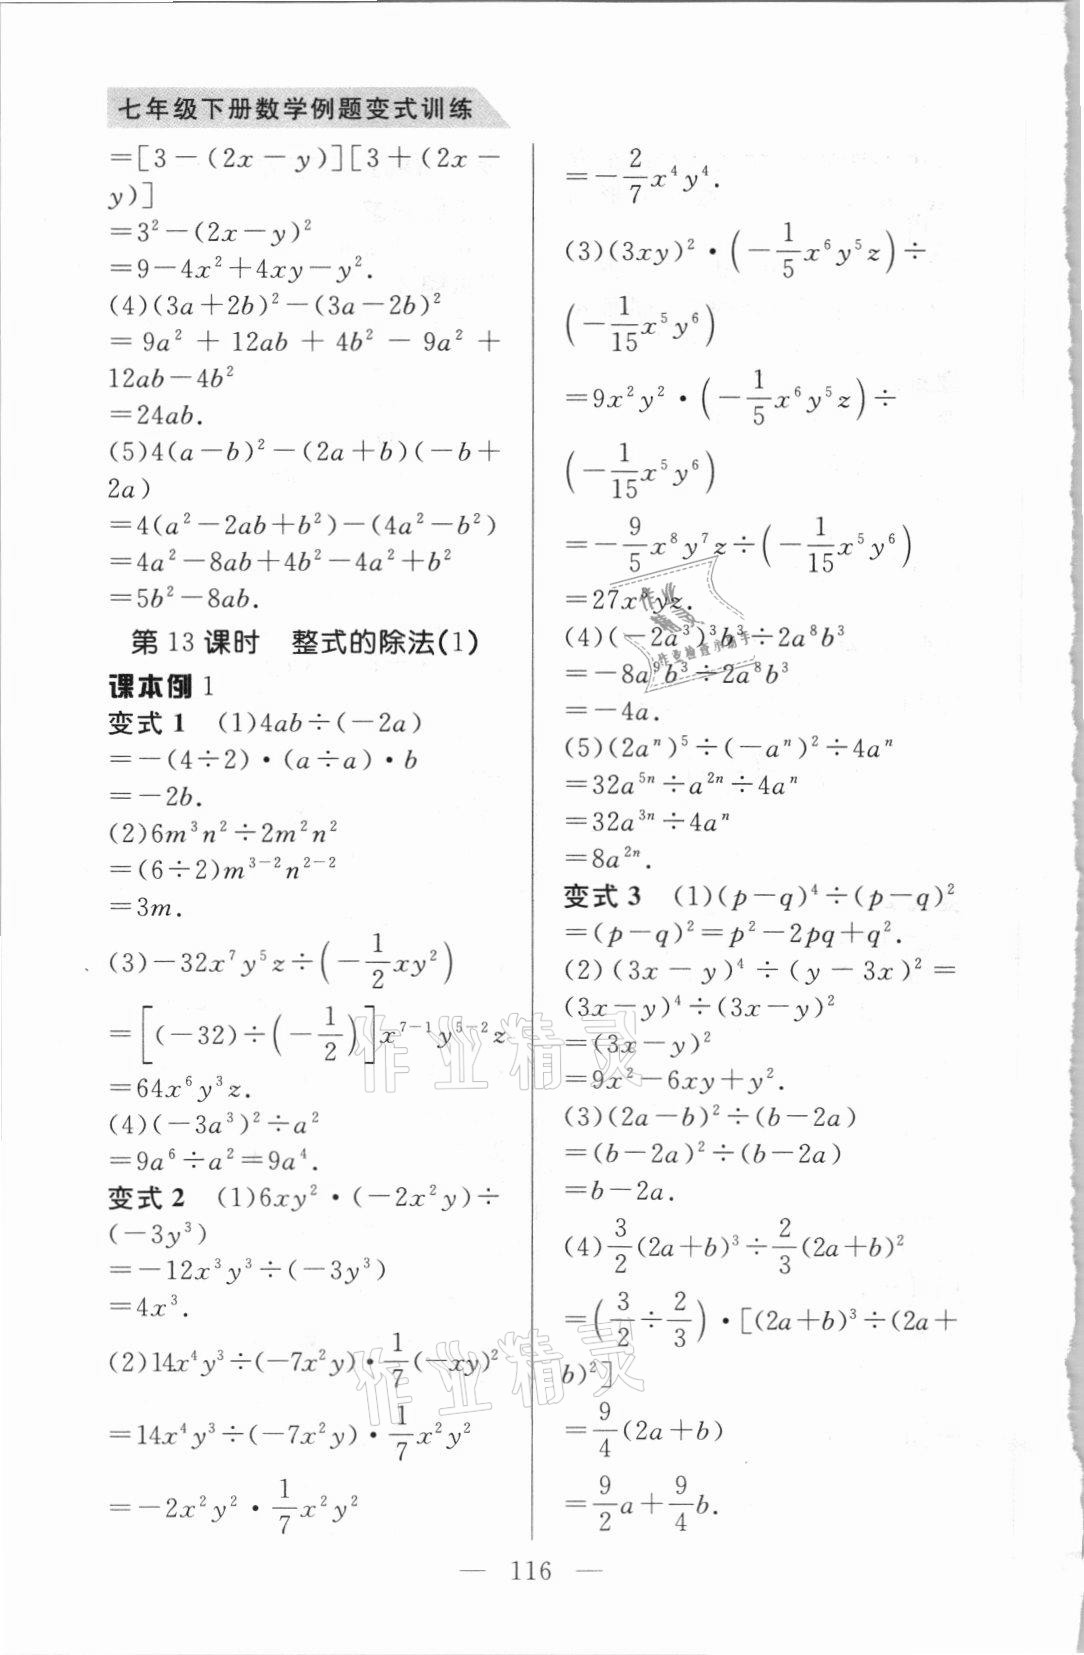 七年级下册数学例题变式训练
=[3-(2x-y)][3+(2x-
y)]
=3²-(2x-y)²
=9-4x²+4xy-y².
(4)(3a+2b)²-(3a-2b)²
=9a²+12ab+4b²-9a²+
12ab-4b²
=24ab.
(5)4(a-b)²-(2a+b)(-b+
2a)
=4(a²-2ab+b²)-(4a²-b²)
=4a²-8ab+4b²-4a²+b²
=5b²-8ab.
第13课时 整式的除法(1)
课本例1
变式1 (1)4ab÷(-2a)
=-(4÷2)·(a÷a)·b
=-2b.
(2)6m³n²÷2m²n²
=(6÷2)m³⁻²n²⁻²
=3m.
(3)-32x⁷y⁵z÷(-1/2xy²)
=[(-32)÷(-1/2)]x⁷⁻¹y⁵⁻²z
=64x⁶y³z.
(4)(-3a³)²÷a²
=9a⁶÷a²=9a⁴.
变式2 (1)6xy²·(-2x²y)÷
(-3y³)
=-12x³y³÷(-3y³)
=4x³.
(2)14x⁴y³÷(-7x²y)·1/7(-xy)²
=14x⁴y³÷(-7x²y)·1/7x²y²
=-2x²y²·1/7x²y²
=-2/7x⁴y⁴.
(3)(3xy)²·(-1/5x⁶y⁵z)÷
(-1/15x⁵y⁶)
=9x²y²·(-1/5x⁶y⁵z)÷
(-1/15x⁵y⁶)
=-9/5x⁸y⁷z÷(-1/15x⁵y⁶)
=27x³yz.
(4)(-2a³)³b³÷2a⁸b³
=-8a⁹b³÷2a⁸b³
=-4a.
(5)(2aⁿ)⁵÷(-aⁿ)²÷4aⁿ
=32a⁵ⁿ÷a²ⁿ÷4aⁿ
=32a³ⁿ÷4aⁿ
=8a²ⁿ.
变式3 (1)(p-q)⁴÷(p-q)²
=(p-q)²=p²-2pq+q².
(2)(3x-y)⁴÷(y-3x)²=
(3x-y)⁴÷(3x-y)²
=(3x-y)²
=9x²-6xy+y².
(3)(2a-b)²÷(b-2a)
=(b-2a)²÷(b-2a)
=b-2a.
(4)3/2(2a+b)³÷2/3(2a+b)²
=(3/2÷2/3)·[(2a+b)³÷(2a+
b)²]
=9/4(2a+b)
=9/2a+9/4b.
— 116 —
作业精灵
作业精灵
作业
精灵
作业检查小助手